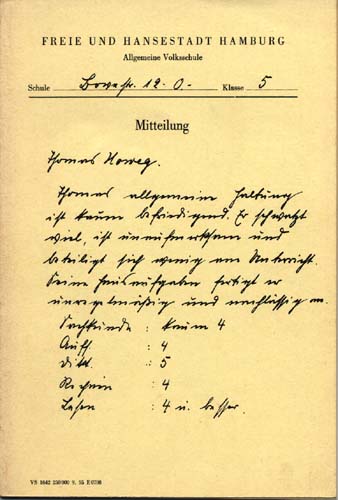 FREIE UND HANSESTADT HAMBURG
Allgemeine Volksschule
Schule Bovestr. 12 O.- Klasse 5
Mitteilung
Thomas Noweg.
Thomas allgemeine Haltung
ist kaum befriedigend. Er schwatzt
viel, ist unaufmerksam und
beteiligt sich wenig am Unterricht.
Seine Hausaufgaben fertigt er
unregelmäßig und nachlässig an.
Sachkunde : kaum 4
Aufs. : 4
Dikt. : 5
Rechnen : 4
Lesen : 4 u. besser.
VS 1642 250 000 9. 55 E/0738